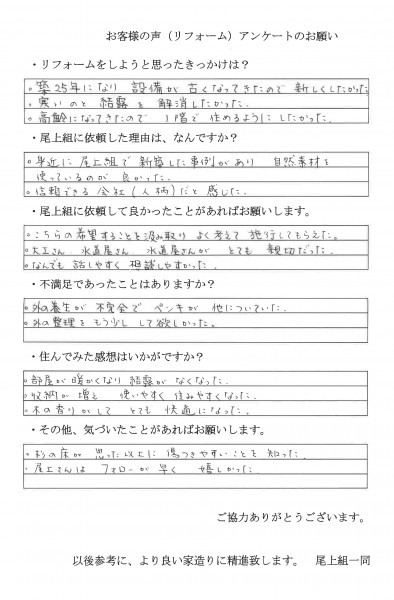 お客様の声（リフォーム）アンケートのお願い
・リフォームをしようと思ったきっかけは？
○築25年になり 設備が古くなってきたので 新しくしたかった
○寒いのと 結露を 解消したかった.
○高齢になってきたので 1階で住めるようにしたかった.
・尾上組に依頼した理由は、なんですか？
○身近に 尾上組で 新築した事例があり 自然素材を
使っているのが 良かった.
○信頼できる会社(人柄)だと感じた.
・尾上組に依頼して良かったことがあればお願いします。
○こちらの希望することを汲み取り よく考えて 施行してもらえた。
○大工さん 水道屋さん 水道屋さんが とても 親切だった.
○なんでも 話しやすく 相談しやすかった.
・不満足であったことはありますか？
○外の養生が 不完全で ペンキが 他についていた.
○外の整理を もう少し して欲しかった。
・住んでみた感想はいかがですか？
○部屋が 暖かくなり 結露が なくなった.
○収納が 増え 使いやすく 住みやすくなった.
○木の香りがして とても 快適になった.
・その他、気づいたことがあればお願いします。
○杉の床が 思った以上に 傷つきやすいことを 知った.
○尾上さんは フォローが早く 嬉しかった.
ご協力ありがとうございます。
以後参考に、より良い家造りに精進致します。 尾上組一同